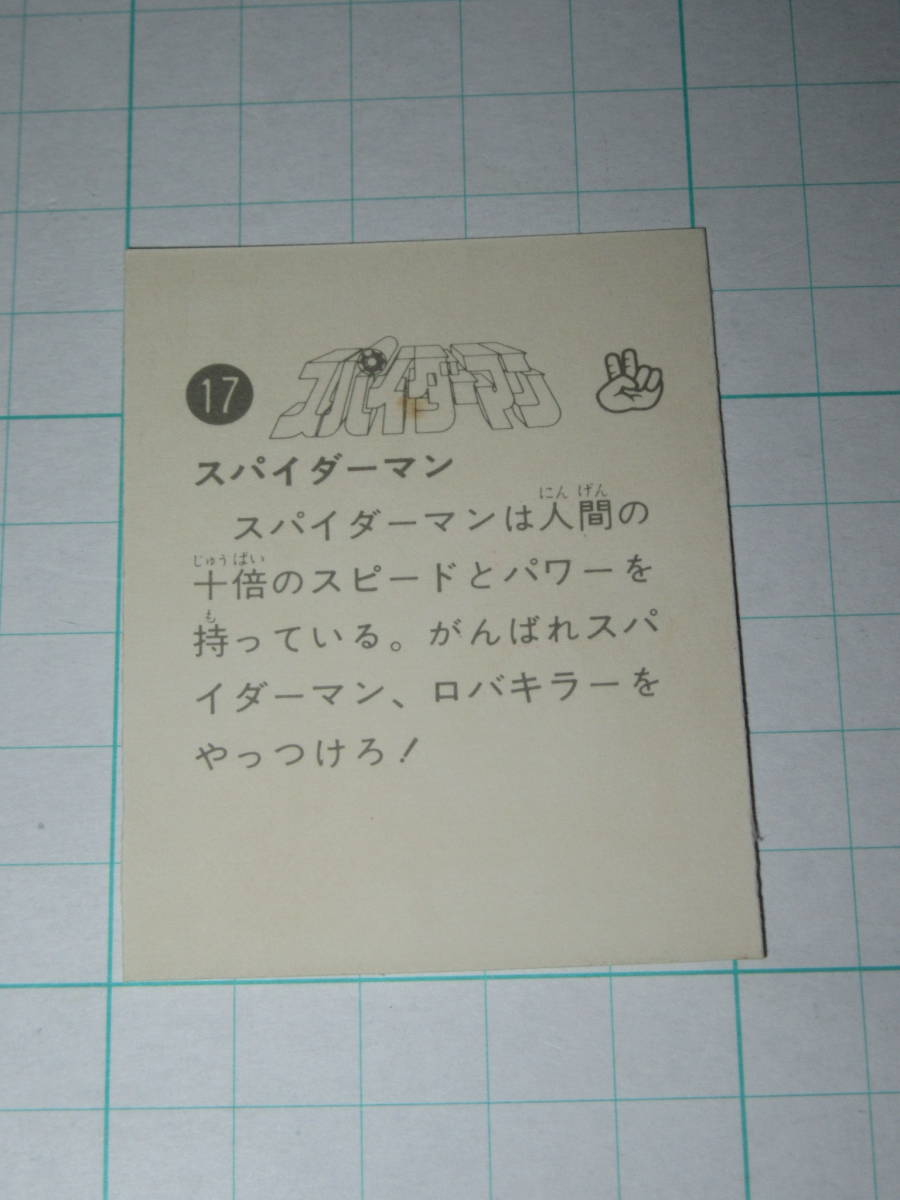 17
スパイダーマン
スパイダーマン
にん げん
スパイダーマンは人間の
じゅう ばい
十倍のスピードとパワーを
も
持っている。がんばれスパ
イダーマン、ロバキラーを
やっつけろ!